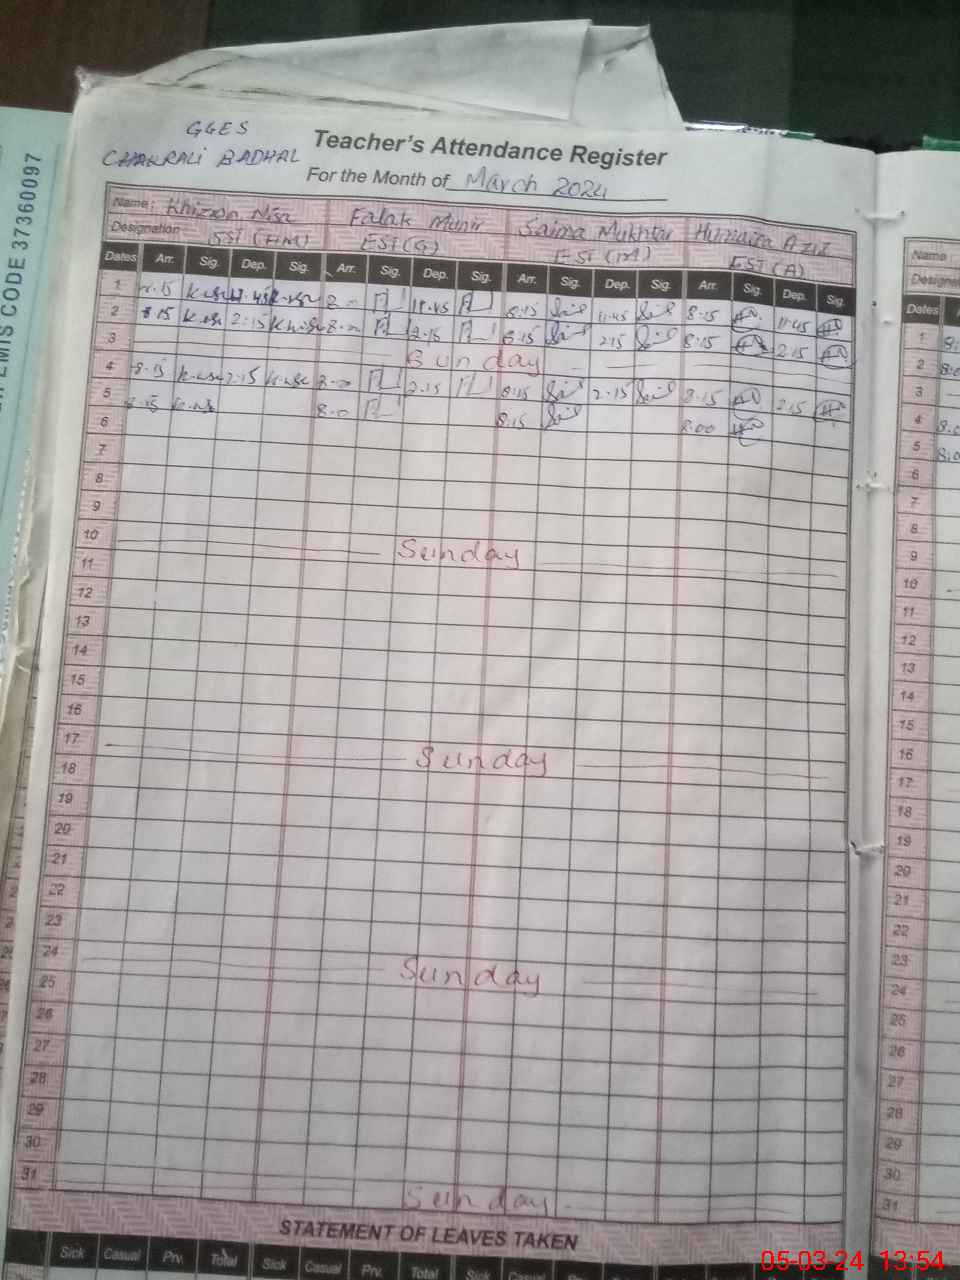 EMIS CODE 37360097
GGES
CHAKRALI BADHAL
Teacher's Attendance Register
For the Month of March 2024
Name: Khizon Nisa Falak Munir Saima Mukhtar Humaira Aziz
Designation SST (HM) EST (G) EST (M) EST (A)
Dates Arr. Sig. Dep. Sig. Arr. Sig. Dep. Sig. Arr. Sig. Dep. Sig. Arr. Sig. Dep. Sig.
1 11.45 8:15 11:45 8:15 11:45
2 8.15 2:15 2.15 8:15 2:15 8:15 2:15
3 Sunday
4 8.15 2.15 8.0 2.15 8:15 2.15 8.15 2:15
5 8.15 8.0 8:15 8:00
6
7
8
9
10 Sunday
11
12
13
14
15
16
17 Sunday
18
19
20
21
22
23
24 Sunday
25
26
27
28
29
30
31 Sunday
STATEMENT OF LEAVES TAKEN
Sick Casual Prv. Total Sick Casual Prv. Total Sick Casual
Name:
Dates
1
2
3
4
5
6
7
8
9
10
11
12
13
14
15
16
17
18
19
20
21
22
23
24
25
26
27
28
29
30
31
05-03-24 13:54